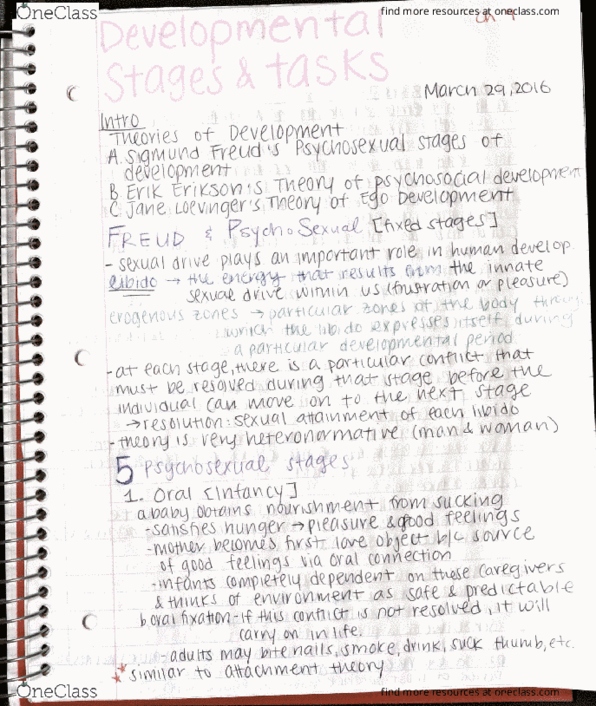 OneClass
find more resources at oneclass.com
Ch 9
Developmental
Stages & tasks
March 29, 2016
Intro
Theories of Development
A. Sigmund Freud's Psychosexual stages of
development
B Erik Erikson's Theory of psychosocial development
C. Jane Loevinger's Theory of Ego Development
FREUD & PsychoSexual [fixed stages]
- sexual drive plays an important role in human develop.
libido → the energy that results from the innate
sexual drive within us (frustration or pleasure)
erogenous zones → particular zones of the body through
which the libido expresses itself during
a particular developmental period
- at each stage, there is a particular conflict that
must be resolved during that stage before the
individual can move on to the next stage
→ resolution: sexual attainment of each libido
- theory is very heteronormative (man & woman)
5 Psychosexual stages
1. Oral [Infancy]
a. baby obtains nourishment from sucking
- satisfies hunger → pleasure & good feelings
- mother becomes first love object b/c source
of good feelings via oral connection
- infants completely dependent on these caregivers
& thinks of environment as safe & predictable
b. oral fixation - if this conflict is not resolved, it will
carry on in life.
- adults may bite nails, smoke, drink, suck thumb, etc.
** similar to attachment theory
OneClass
find more resources at oneclass.com